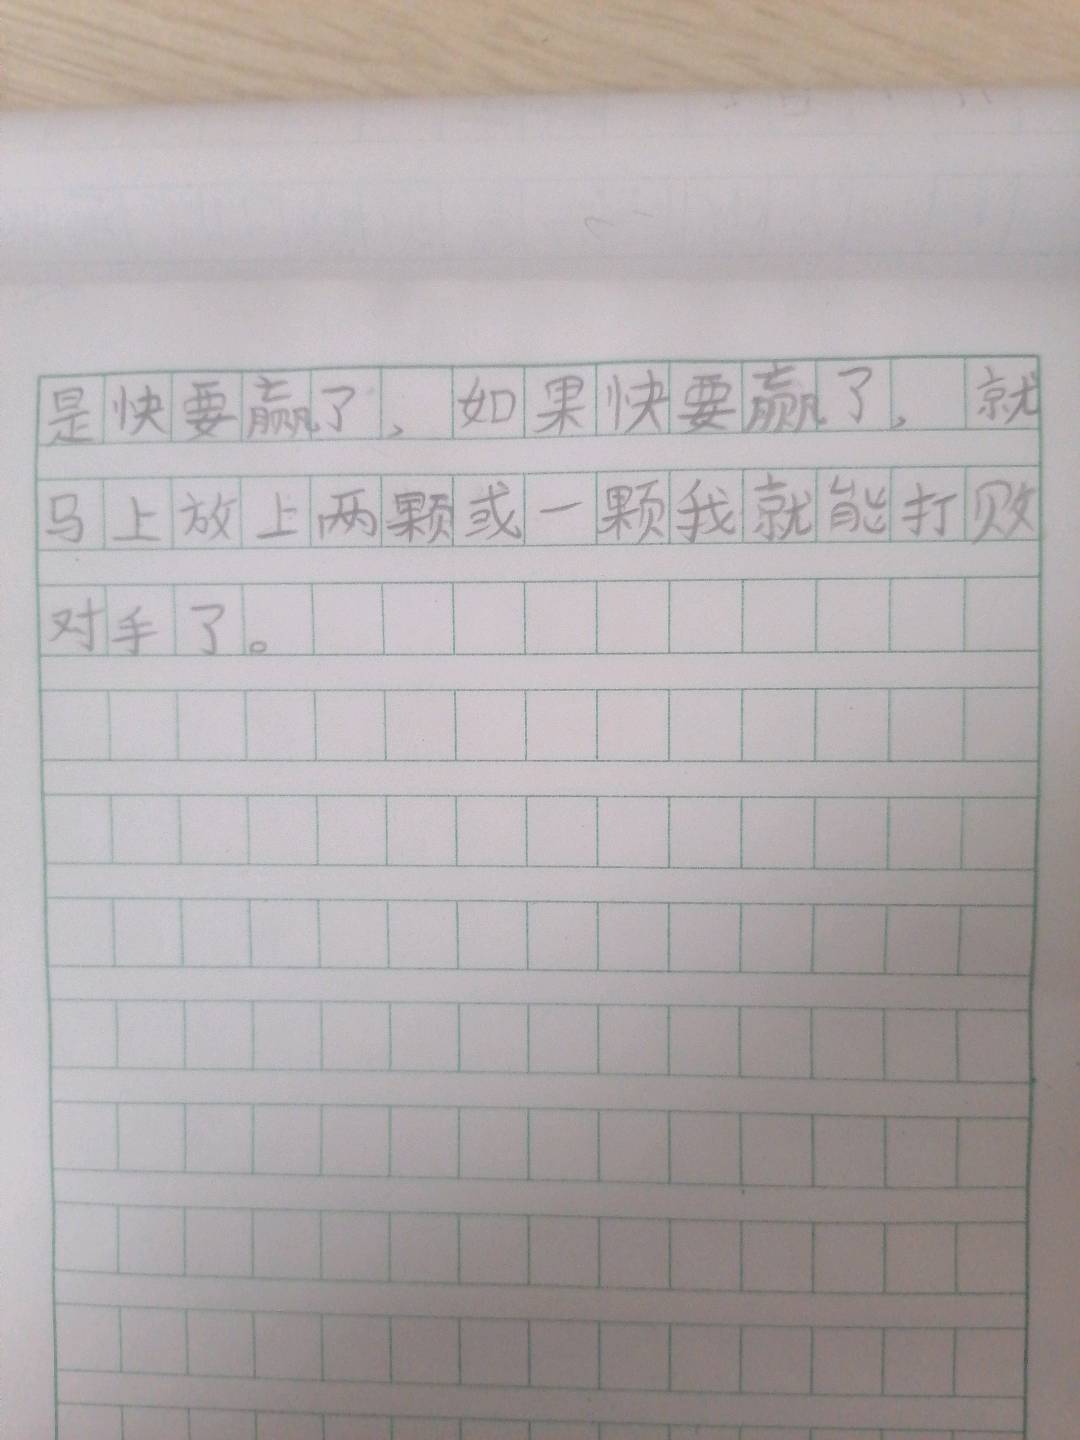 是快要赢了，如果快要赢了，就
马上放上两颗或一颗我就能打败
对手了。